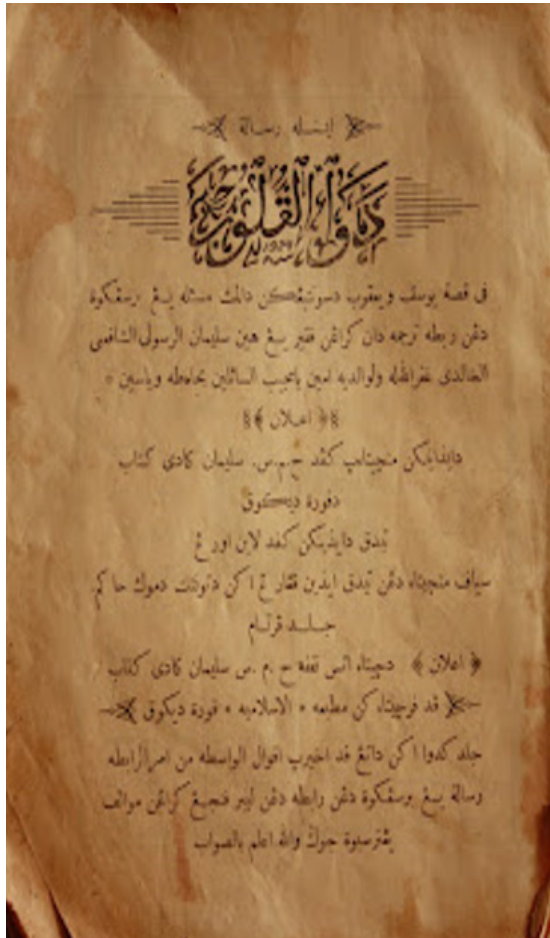 اينيله رسالة
دواء القلوب
فى قصة يوسف ويعقوب دسوتيڤكن دالمڽ مسئله يڠ برسڠكوة
دڠن ربطه ترجمه دان كراڠن فقير يڠ هين سليمان الرسولى الشافعى
الخالدى غفر الله له ولوالديه امين يامجيب السائلين بجاه طه وياسين
﴿ اعلان ﴾
منچيتاڤ كڤد ح.م.س. سليمان كادى كتاب
دفورة ديكوق
تيدق دايذينكن كڤد لاين اورڠ
سياڤ منچيتاه دڠن تيدق ايذين ڤڠارڠ اكن دتونتت دموك حاكم
جلد ڤرتام
﴿ اعلان ﴾ دچيتاه اتس نفقه ح.م.س سليمان كادى كتاب
قد فرچيتاه كن مطبعه * الاسلاميه * فورة ديكوق
جلد كدوا اكن داتڠ قد اخيرڽ اقوال الواسطه من اسرار الرابطه
رسالة يڠ برسڠكوة دڠن رابطه دڠن ليبر ڤنجڠ كراڠن موالف
جوڬ والله اعلم بالصواب